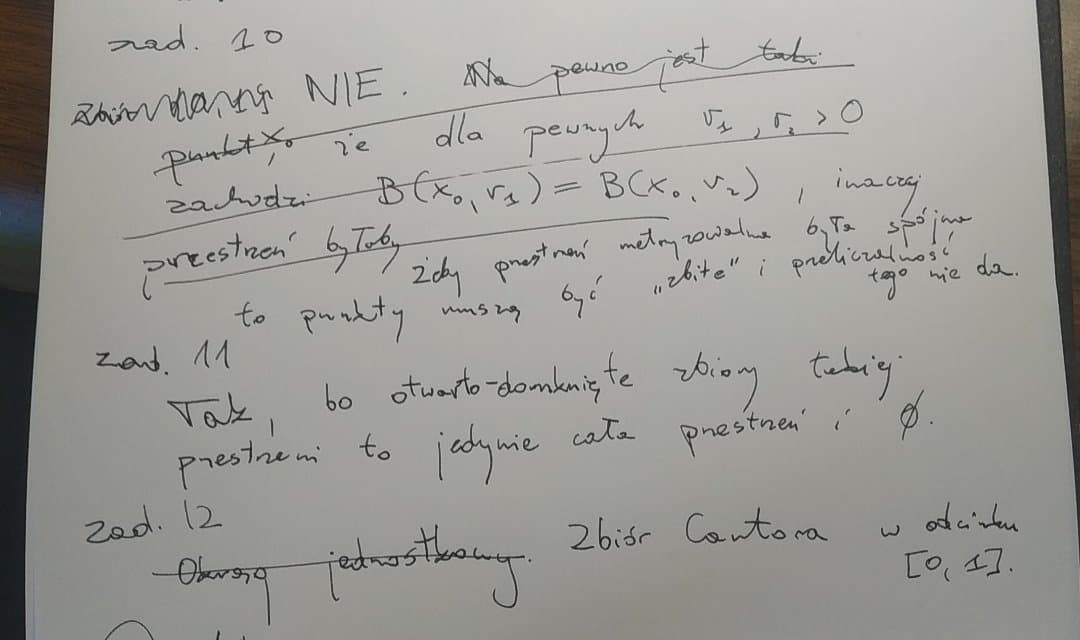 zad. 10
NIE. Na pewno jest taki
punkt x₀, że dla pewnych r₁, r₂ > 0
zachodzi B(x₀, r₁) = B(x₀, r₂), inaczej
przestrzeń byłaby
żeby przestrzeń metryzowalna była spójna
to punkty muszą być „zbite" i przeliczalność
tego nie da.
zad. 11
Tak, bo otwarto-domknięte zbiory takiej
przestrzeni to jedynie cała przestrzeń i ∅.
zad. 12
Okrąg jednostkowy. Zbiór Cantora w odcinku
[0, 1].